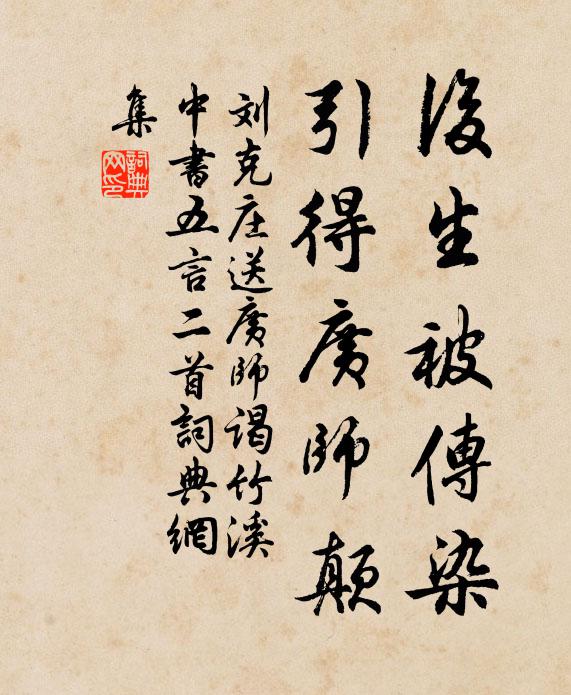 後生被傳染
引得廣師顛
刘克庄送廣師謁竹溪
中書五言二首詞典網
集
詞典網印